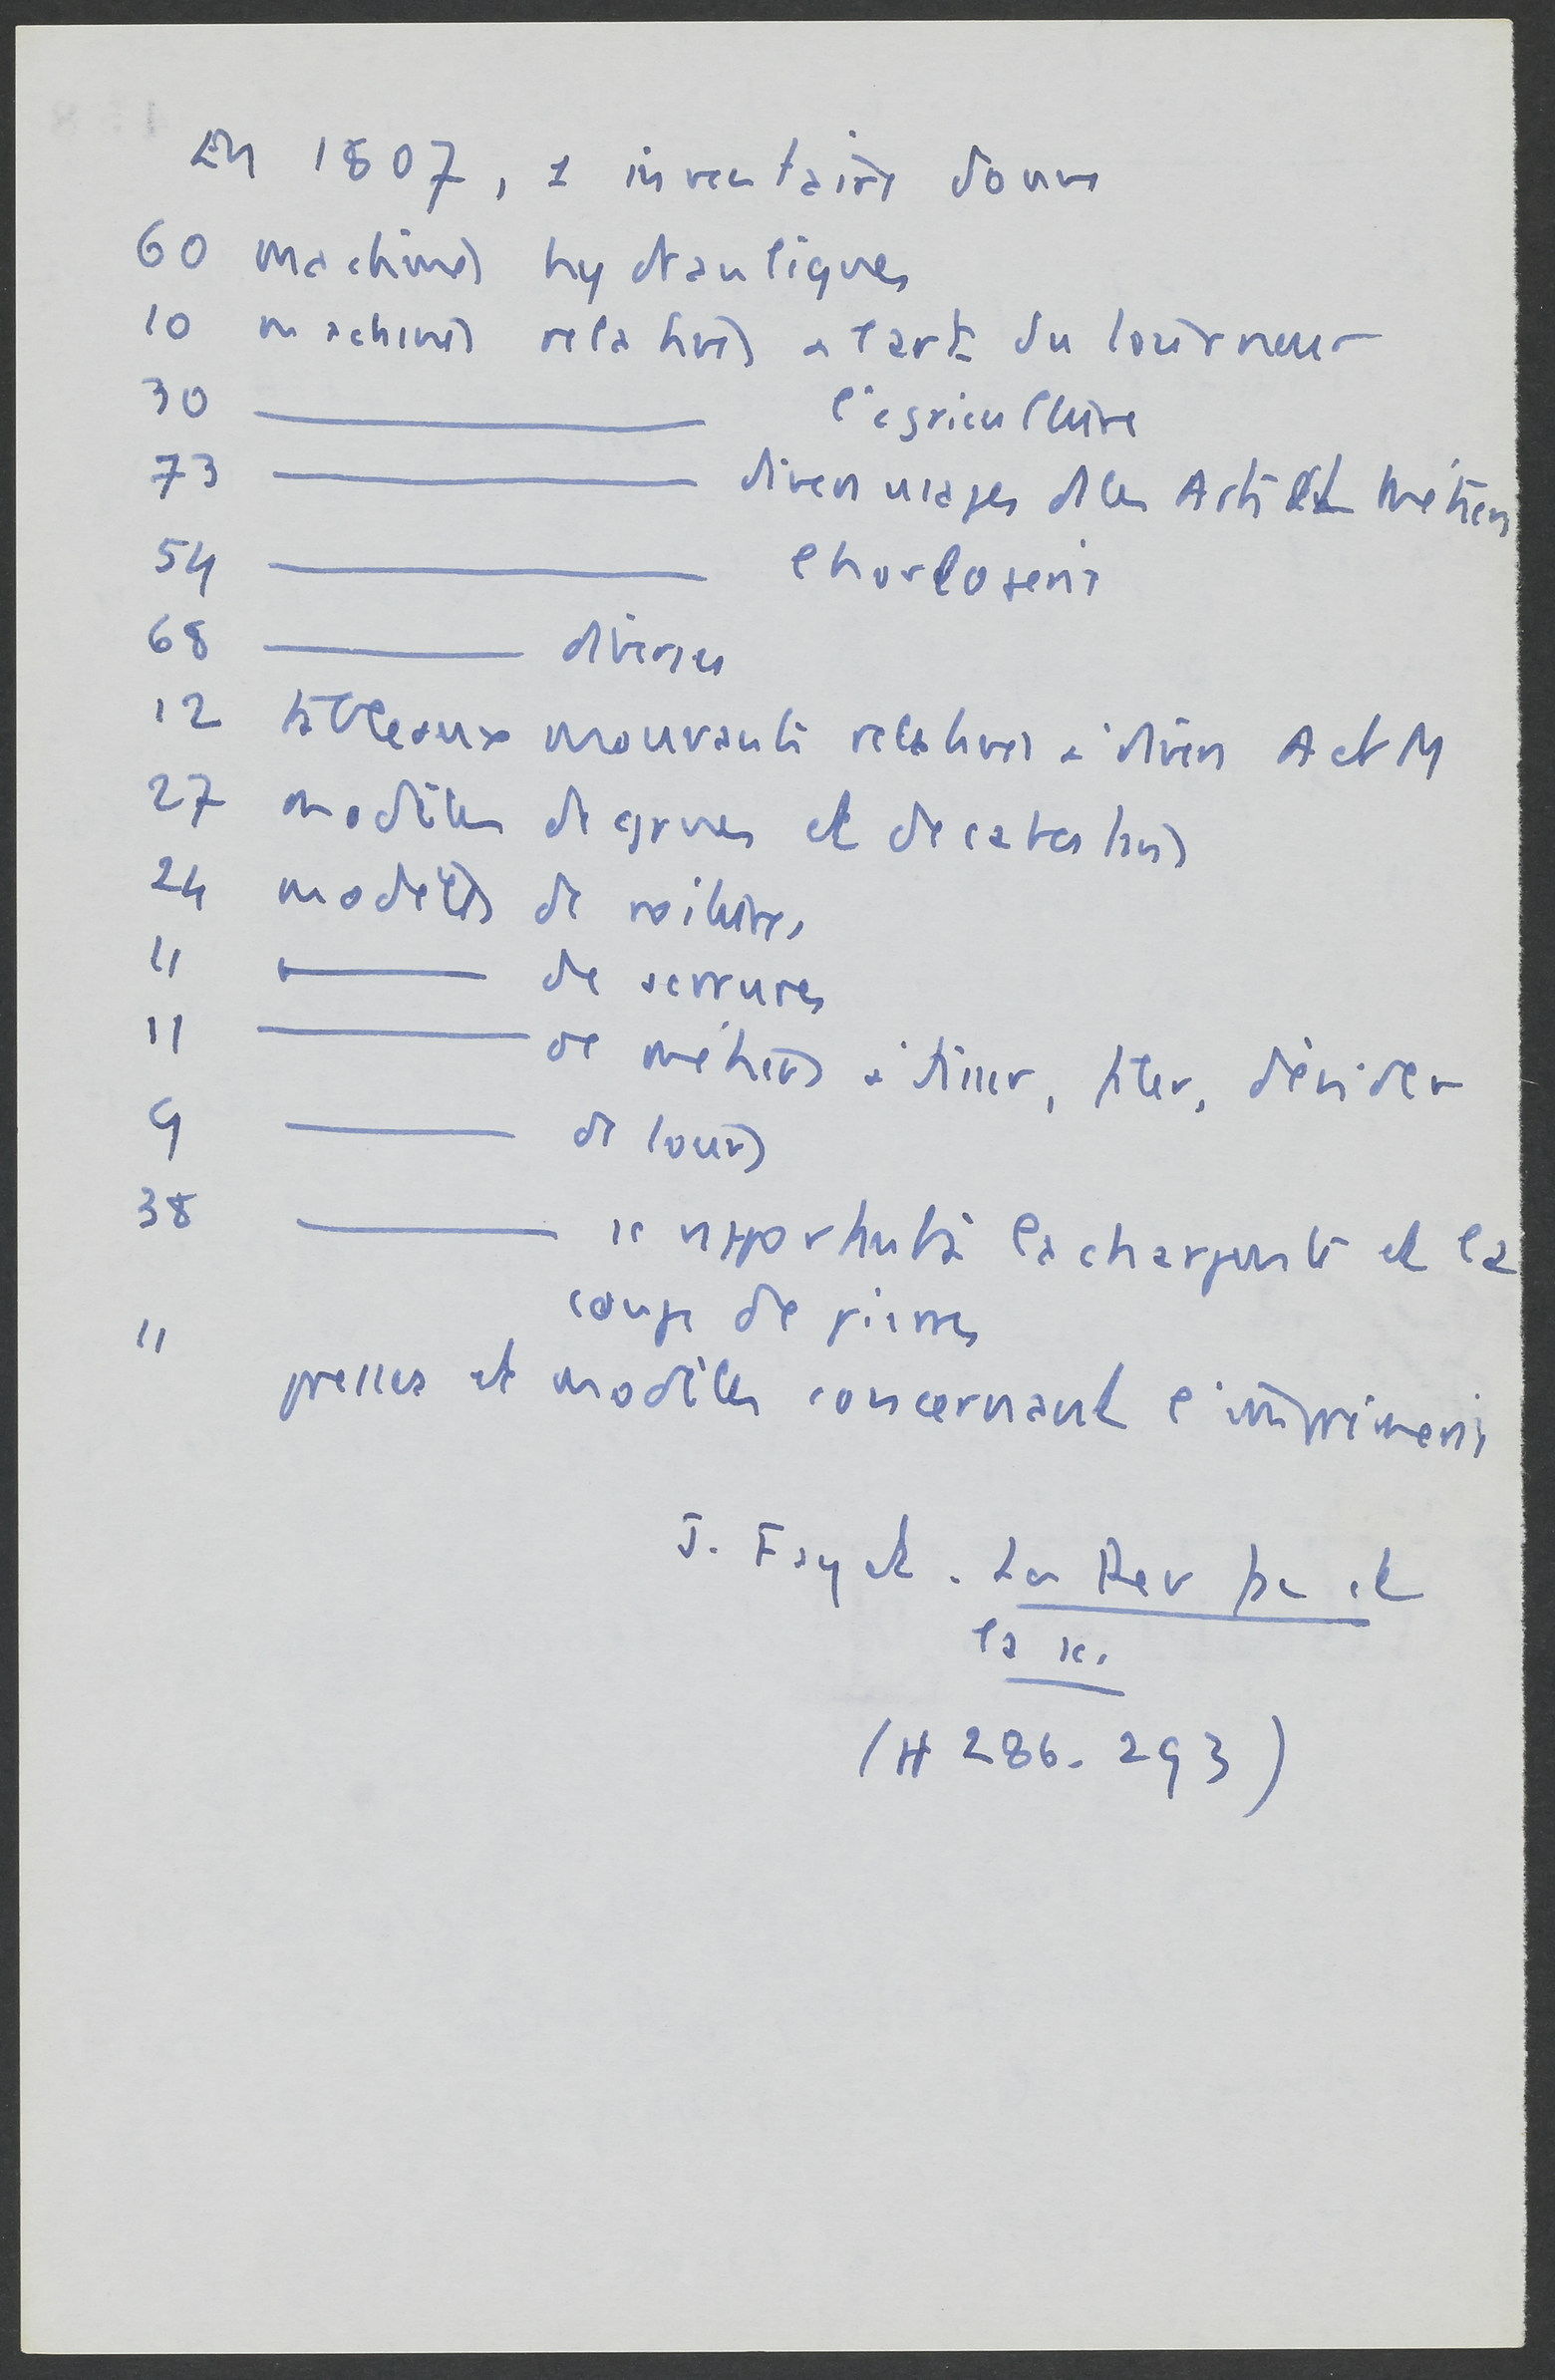 En 1807, 1 inventaire donne
60 machines hydrauliques
10 machines relatives a l'art du tourneur
30 ——— l'agriculture
73 ——— divers usages des Arts et Métiers
54 ——— l horlogerie
68 ——— diverses
12 tableaux mouvants relatives à divers A et M
27 modèles de grues et de cabestans
24 modèles de voitures
11 ——— de serrures
11 ——— de métiers à tisser, filer, dévider
9 ——— de tours
38 ——— se rapportant à la charpente et la
coupe de pierres
11
presses et modèles concernant l'imprimerie
J. Fayet. La Rev fse et
la sc.
(H 286-293)